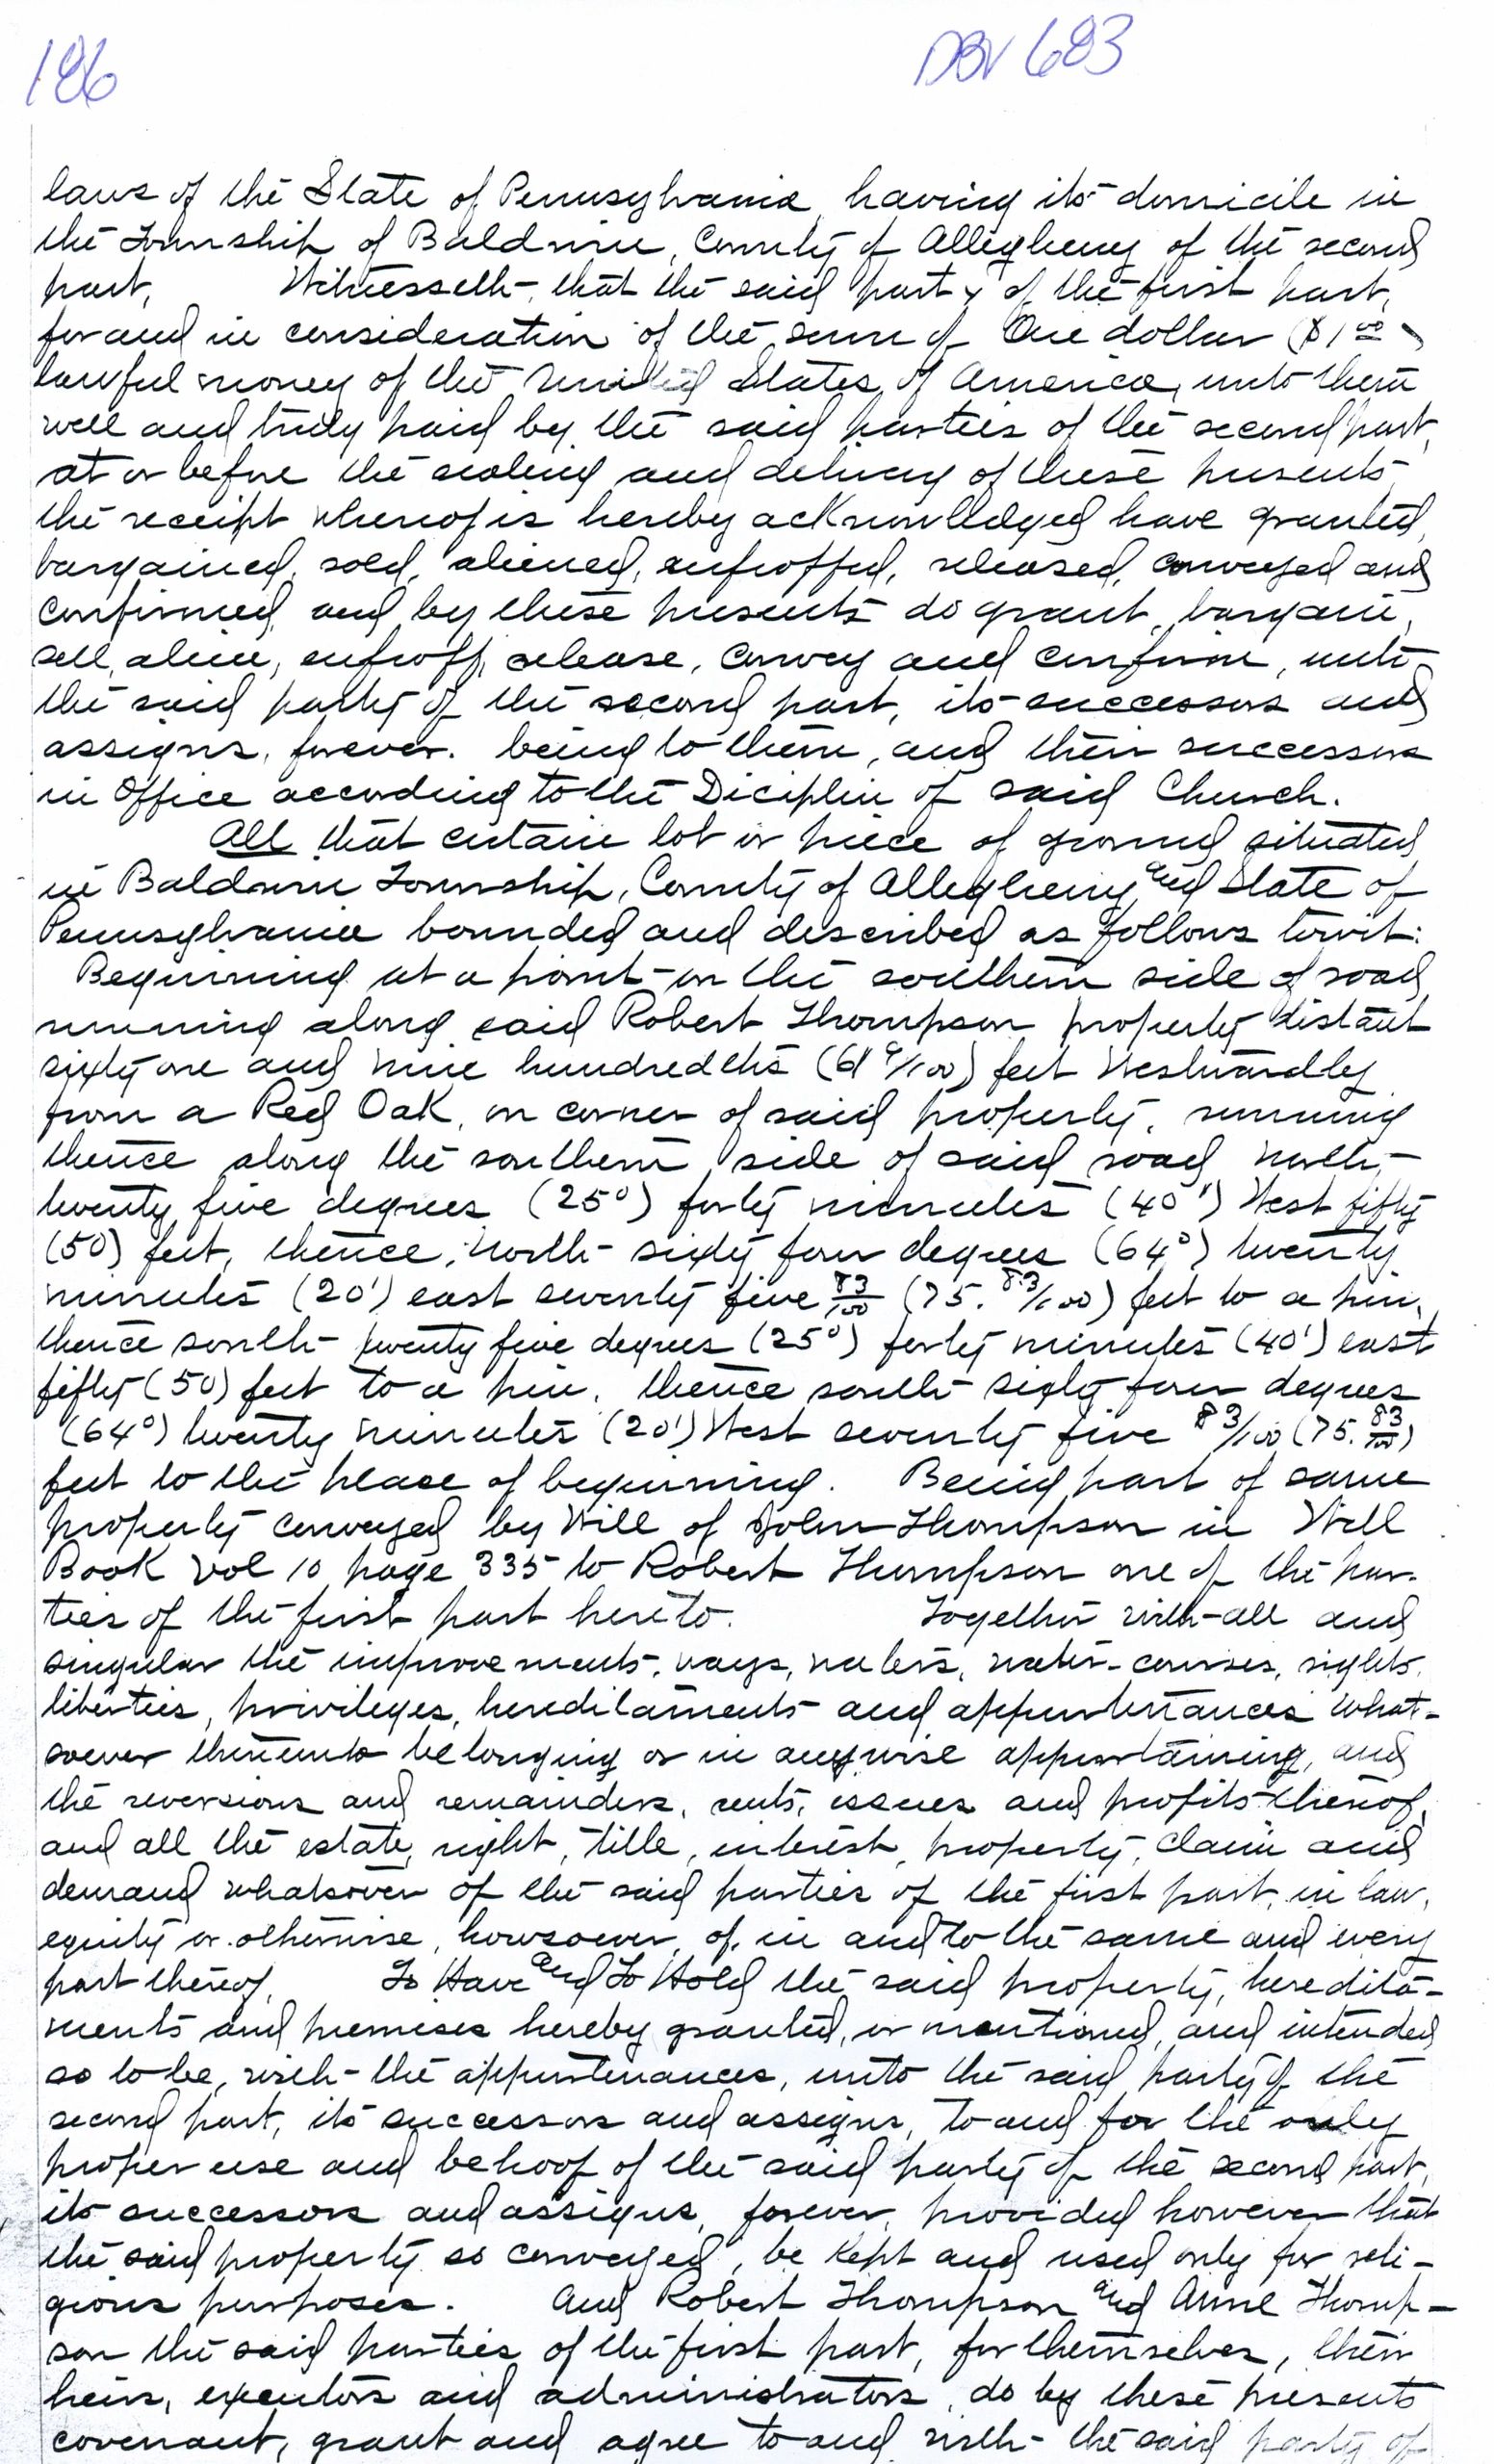 186
DBV 683
laws of the State of Pennsylvania, having its domicile in
the Township of Baldwin, County of Allegheny of the second
part, Witnesseth, that the said party of the first part,
for and in consideration of the sum of One dollar ($1.00)
lawful money of the United States of America, unto them
well and truly paid by the said parties of the second part,
at or before the sealing and delivery of these presents
the receipt whereof is hereby acknowledged have granted,
bargained, sold, aliened, enfeoffed, released, conveyed and
confirmed, and by these presents do grant, bargain,
sell, alien, enfeoff, release, convey and confirm, unto
the said party of the second part, its successors and
assigns, forever. being to them, and their successors
in Office according to the Diciplin of said Church.
All that certain lot or piece of ground situated
in Baldwin Township, County of Allegheny and State of
Pennsylvania bounded and described as follows towit:
Beginning at a point on the southern side of road
running along said Robert Thompson property distant
sixty one and nine hundredths (61 9/100) feet Westwardly
from a Red Oak, on corner of said property, running
thence along the southern side of said road north,
twenty five degrees (25°) forty minutes (40') West fifty
(50) feet, thence, north sixty four degrees (64°) twenty
minutes (20') east seventy five 83/100 (75. 83/100) feet to a pin,
thence south twenty five degrees (25°) forty minutes (40') east
fifty (50) feet to a pin, thence south sixty four degrees
(64°) twenty minutes (20') West seventy five 83/100 (75. 83/100)
feet to the place of beginning. Being part of same
property conveyed by Will of John Thompson in Will
Book Vol 10 page 335 to Robert Thompson one of the par-
ties of the first part hereto. Together with all and
singular the improvements, ways, waters, water-courses, rights,
liberties, privileges, hereditaments and appurtenances what-
soever thereunto belonging or in anywise appurtaining, and
the reversions and remainders, rents, issues and profits thereof,
and all the estate, right, title, interest, property, claim and
demand whatsoever of the said parties of the first part, in law,
equity or otherwise, howsoever, of, in and to the same and every
part thereof, To Have and To Hold the said property, heredita-
ments and premises hereby granted, or mentioned, and intended
so to be, with the appurtenances, unto the said party of the
second part, its successors and assigns, to and for the only
proper use and behoof of the said party of the second part,
its successors and assigns, forever, provided however that
the said property so conveyed, be kept and used only for reli-
gious purposes. And Robert Thompson and Anne Thomp-
son the said parties of the first part, for themselves, their
heirs, executors and administrators, do by these presents
covenant, grant and agree to and with the said party of